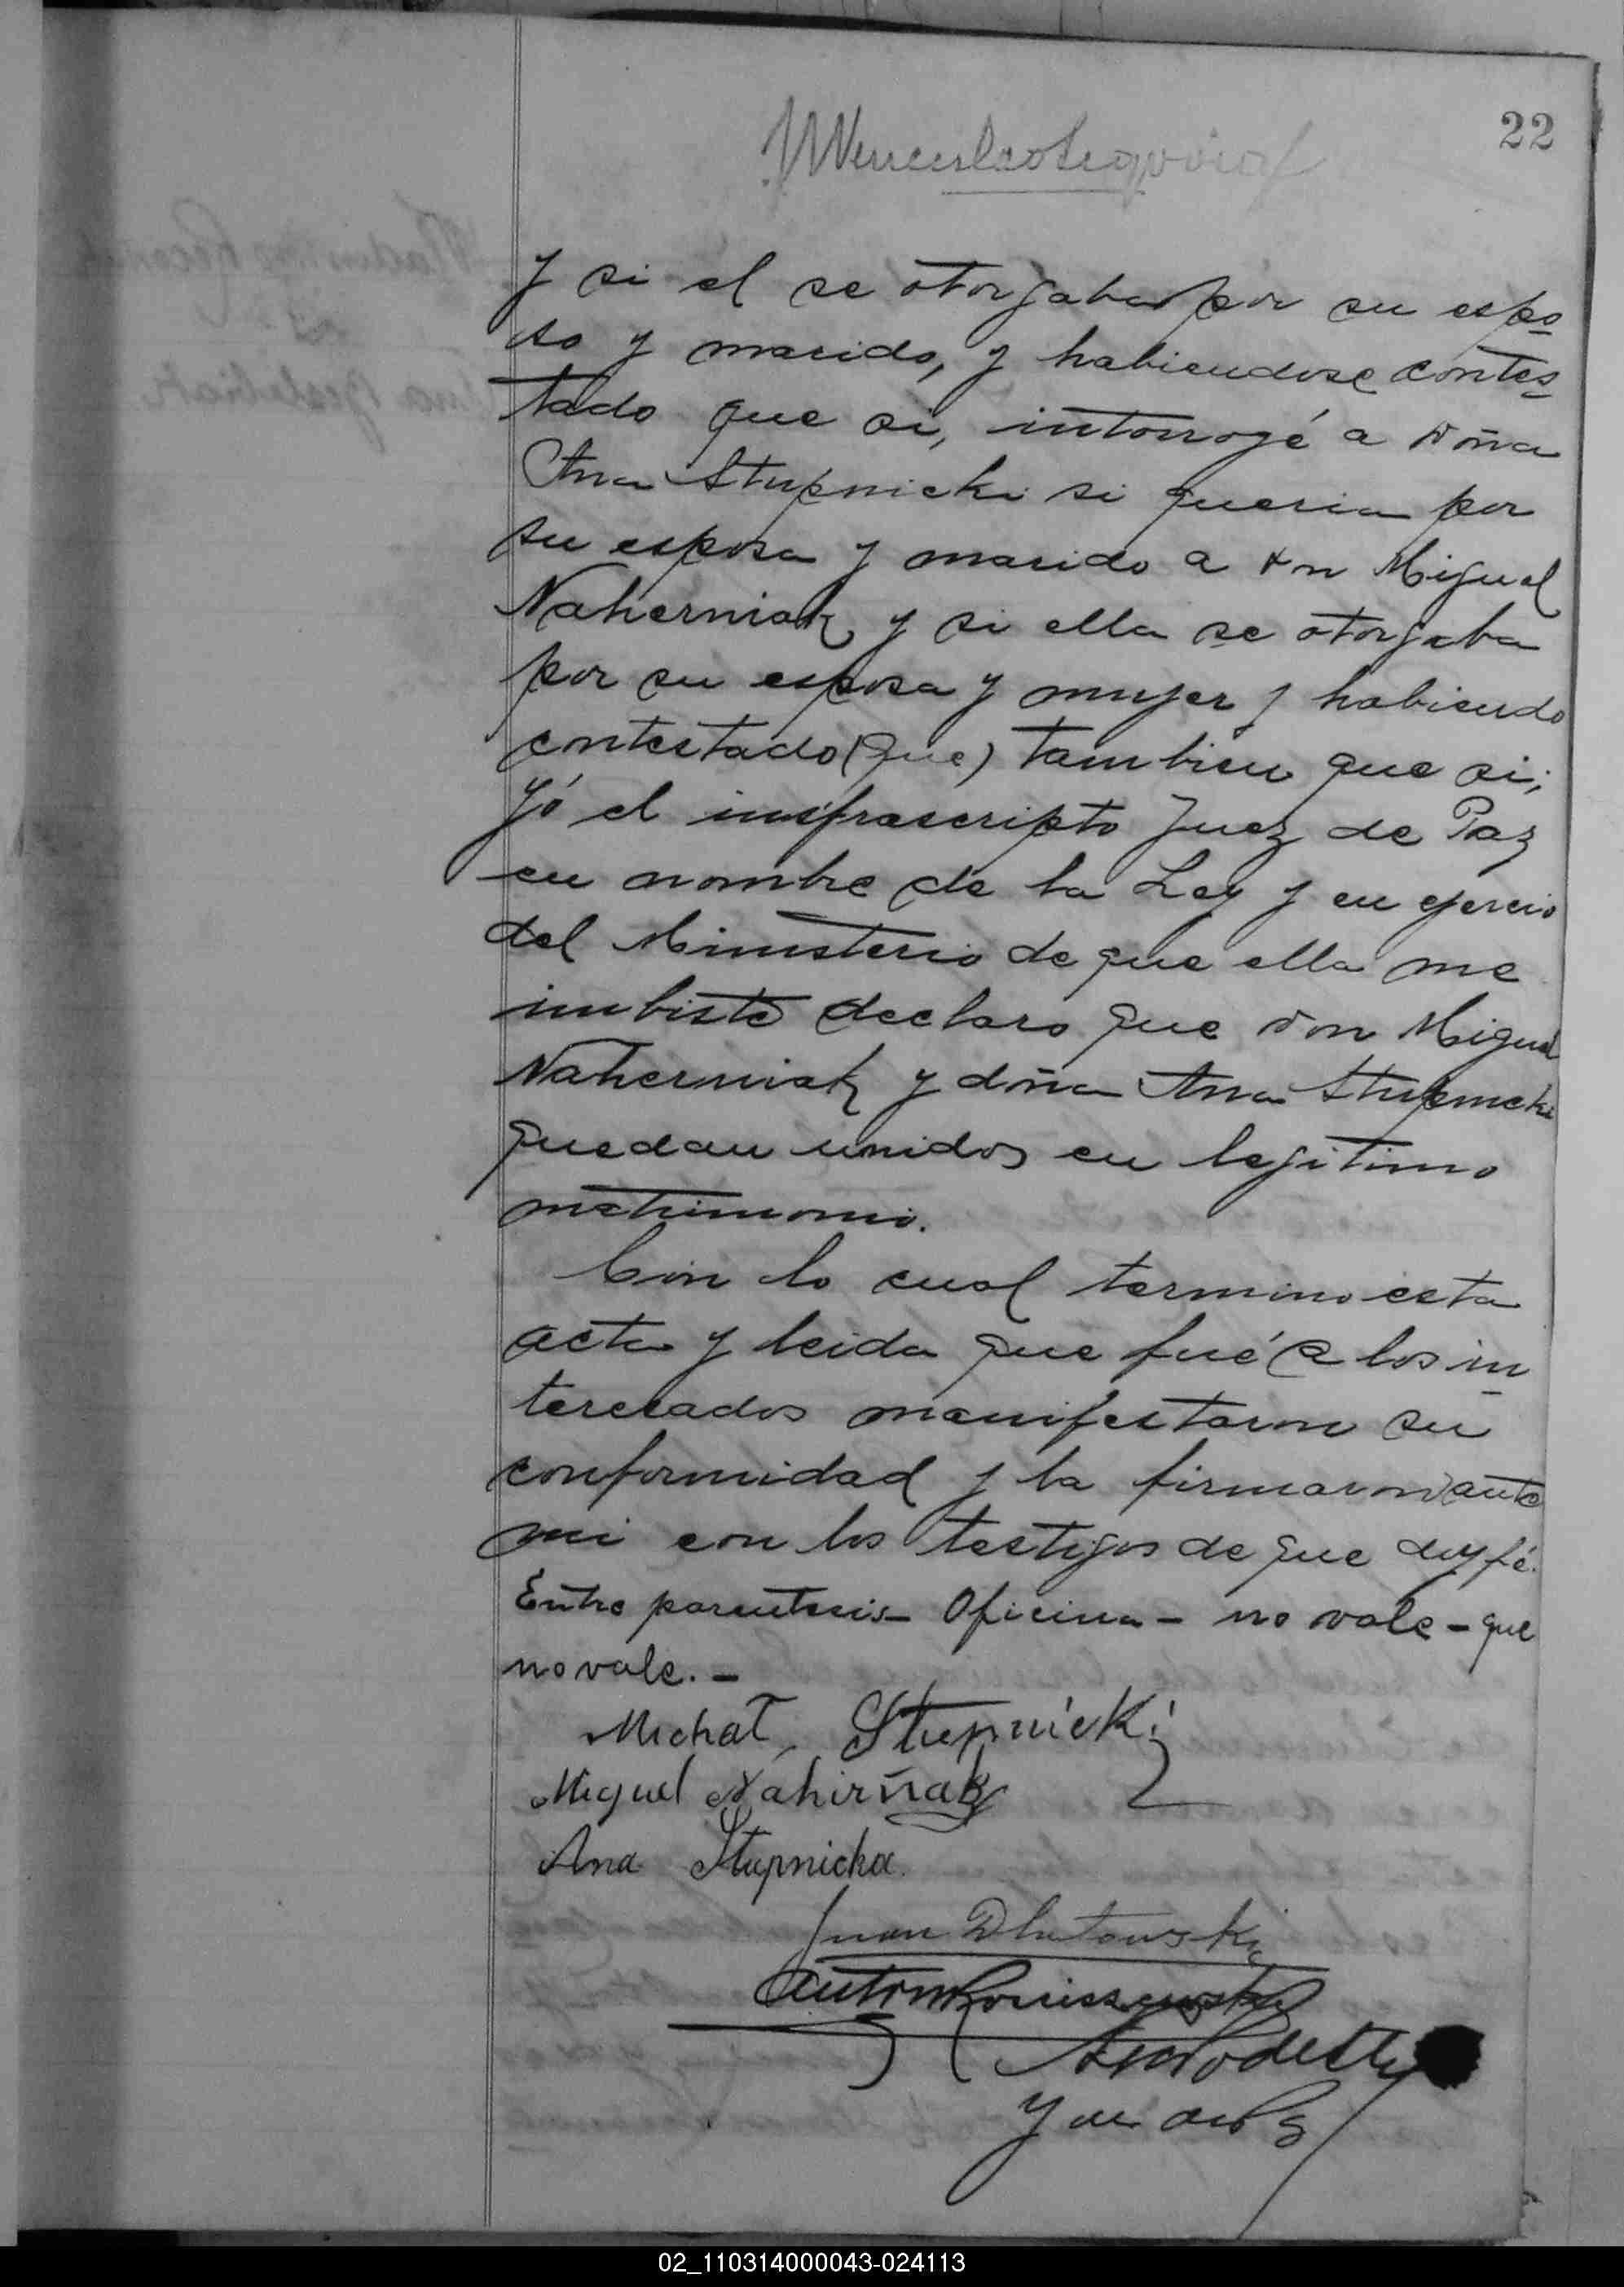 22
y si el se otorgaba por su espo
so y marido, y habiendose contes
tado que si, intorrogé a doña
Ana Stupnicki si queria por
su esposa y marido a don Miguel
Naherniak y si ella se otorgaba
por su esposa y mujer y habiendo
contestado (que) tambien que si;
Yó el insfrascripto Juez de Paz
en nombre de la Ley y en ejercio
del Ministerio de que ella me
imbiste declaro que don Miguel
Naherniak y doña Ana Stupnicki
quedan unidos en legitimo
matrimonio.
Con lo cual termino esta
acta y leida que fué a los in
terezados manifestaron su
conformidad y la firmaron ante
mi con los testigos de que doy fé.
Entre parentesis - Oficina - no vale - que
no vale. -
Michał Stupnicki
Miguel Nahirñak
Ana Stupnicka
Juan Dlutowski
Anton
Podestá
Juez de Paz
02_110314000043-024113